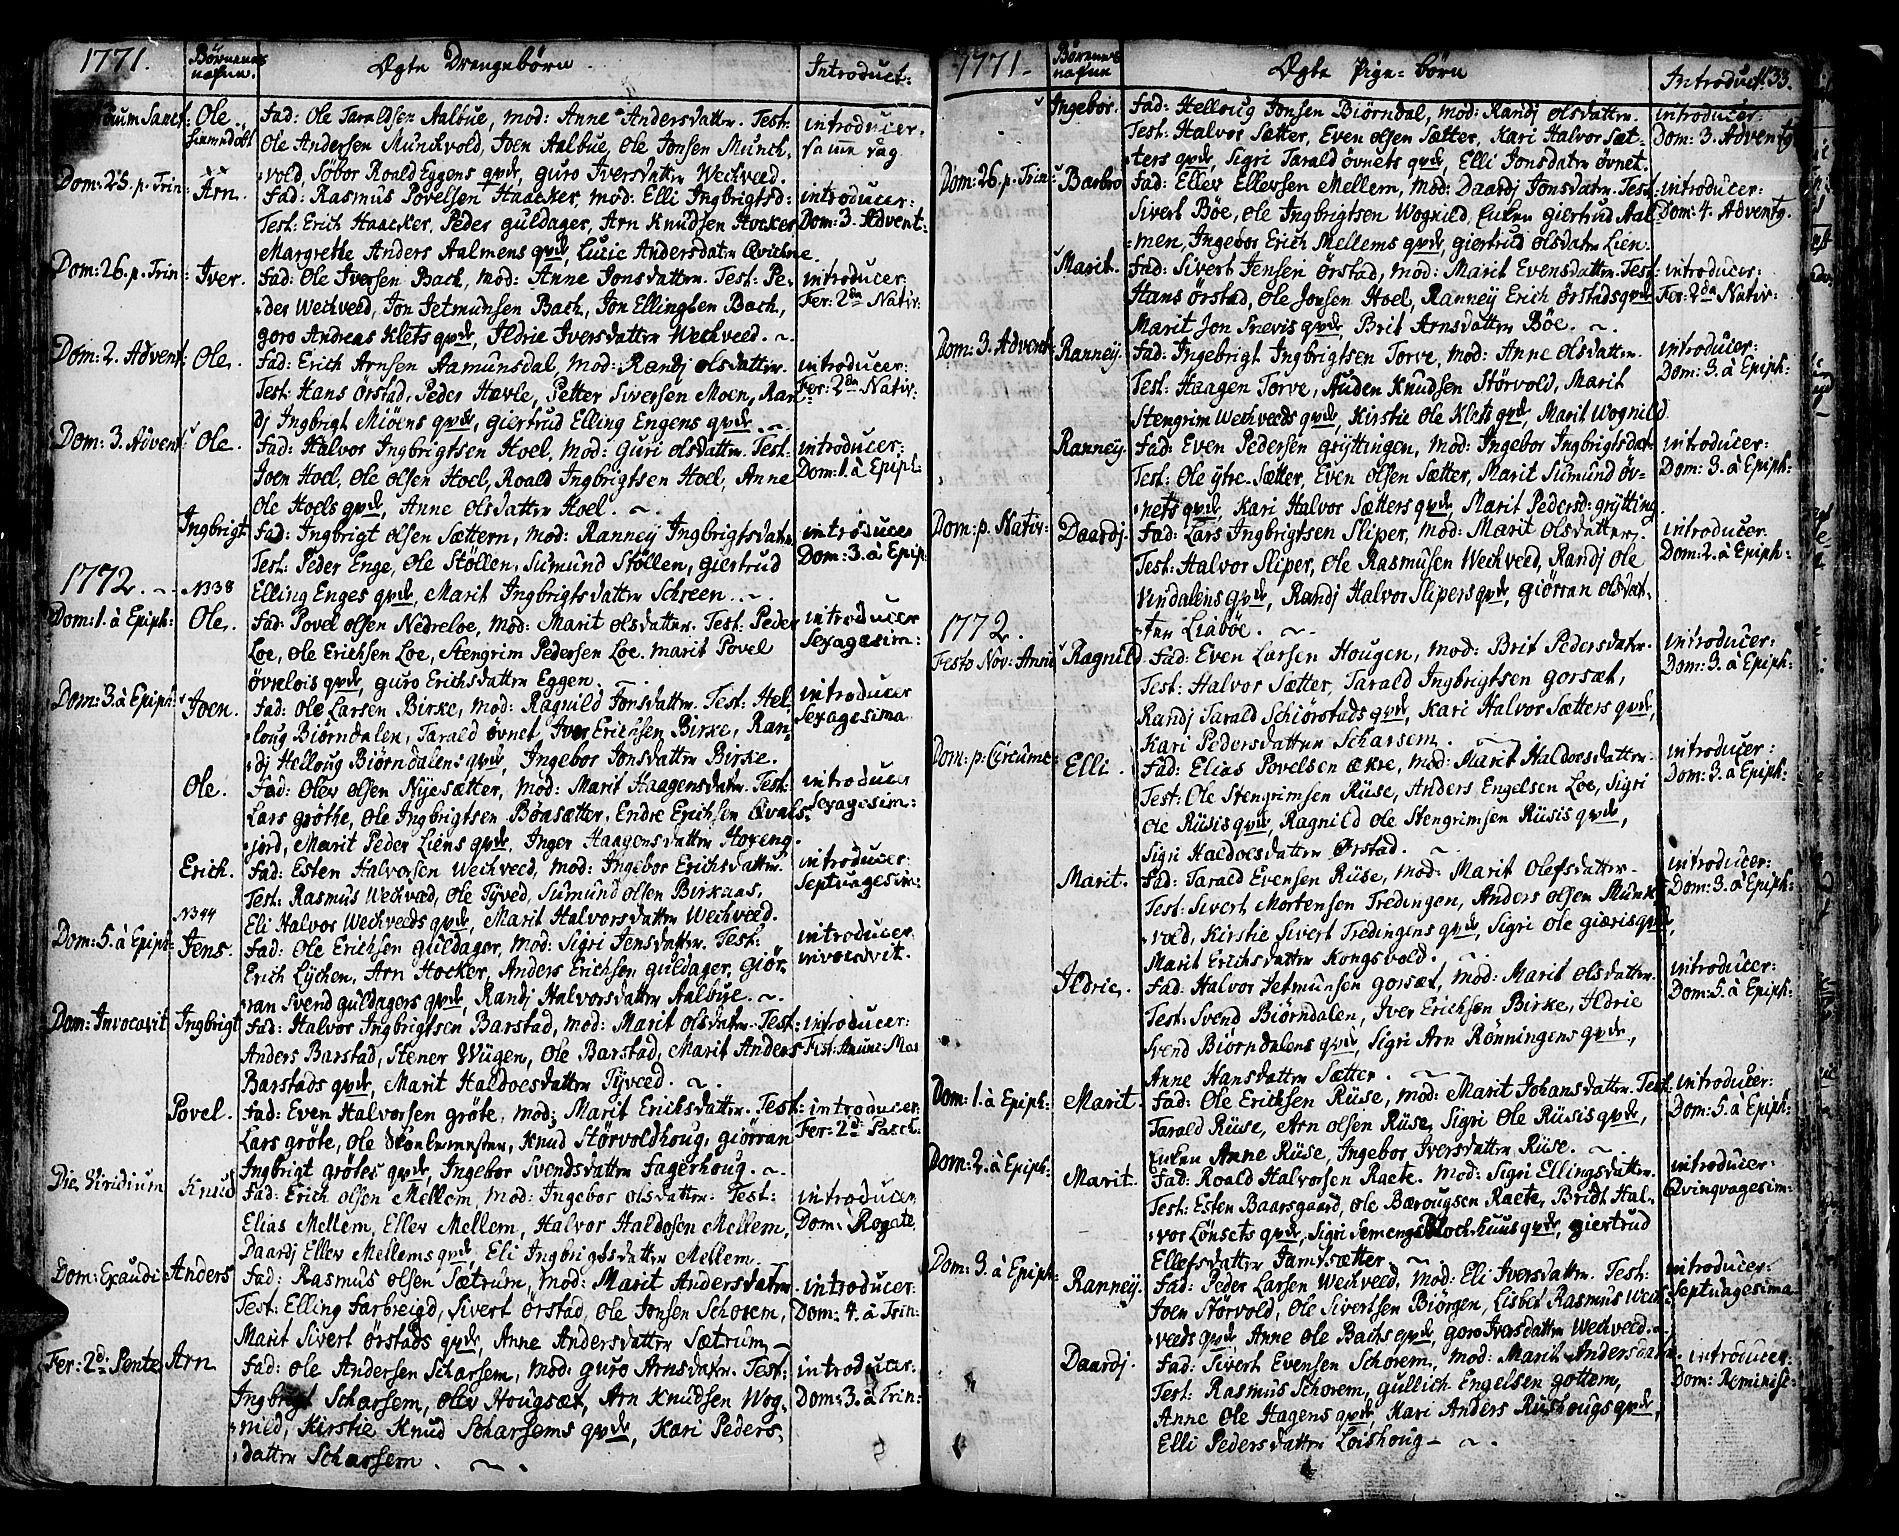 1771.
Børnenes nafne.
Ægte Drengebørn.
Introduct:
Ole
hiemedøbt
Fad: Ole Taraldsen Aalbue, mod: Anne Andersdattr. Test:
introducer.
Ole Andersen Munckvold, Joen Aalbue, Ole Jonsen Munck-
samme dag
vold, Søbor Roald Eggens qvde, guro Iversdattr Weckveed.
Dom: 25. p. Trin:
Arn.
Fad: Rasmus Povelsen Haacker, mod: Elli Ingbrigtsd:
introducer:
Test: Erich Haacker, Peder guldager, Arn Knudsen Hocker
Dom: 3. Advent:
Margrethe Anders Aalmens qvde, Lucie Andersdatr Qvickne.
Dom: 26. p. Trin:
Iver.
Fad: Ole Iversen Bach, mod: Anne Jonsdattr. Test: Pe-
introducer:
der Weckveed, Jon Jetmundsen Bach, Jon Ellingsen Bach,
Fer: 2da Nativ:
goro Andreas Klets qvde, Ildrie Iversdattr Weckveed.
Dom: 2. Advent:
Ole.
Fad: Erich Arnsen Aamundsdal, mod: Randj olsdattr.
introducer:
Test: Hans Örstad, Peder Hævle, Petter Siversen Moen, Ran-
Fer: 2da Nativ:
dj Ingbrigt Miöens qvde, giertrud Elling Engens qvde.
Dom: 3. Advent
Ole.
Fad: Halvor Ingbrigtsen Hoel, mod: Guri olsdattr. Test:
introducer:
Joen Hoel, Ole olsen Hoel, Roald Ingbrigtsen Hoel, Anne
Dom: 1. à Epiph:
Ole Hoels qvde, Anne olsdattr Hoel.
Ingbrigt
Fad: Ingbrigt olsen Sættern, mod: Ranney Ingbrigtsdatr.
introducer
Test: Peder Enge, Ole Stöllen, Sumund Stöllen, giertrud
Dom: 3. à Epip:
1772.
N38
Elling Enges qvde, Marit Ingbrigtsdattr Schreen.
Dom: 1. à Epiph:
Ole.
Fad: Povel olsen Nedreloe, mod: Marit olsdattr. Test: Peder
introducer
Loe, Ole Erichsen Loe, Stengrim Pedersen Loe. marit Povel
Sexagesim:
övrelois qvde, guro Erichsdattr Eggen.
Dom: 3. à Epiph:
Joen.
Fad: Ole Larsen Birke, mod: Ragnild Jonsdattr. Test: Hel-
introducer
loug Biörndalen, Tarald övnet Iver Erichsen Birke, Ran-
Sexagesima
dj Helloug Biörndalens qvde, Ingebor Jonsdattr Birke.
Ole.
Fad: Olev olsen Nyesætter, mod: Marit Haagensdatr. Test:
introducer
Lars gröthe, Ole Ingbrigtsen Böasætter, Endre Erichsen Qvals-
Sexagesim:
jord, Marit Peder Liens qvde, Inger Haagensdattr Hoxeng.
Erich.
Fad: Esten Halvorsen Weckveed, mod: Ingebor Erichsdattr.
introducer:
Test: Rasmus Weckveed, Ole Tyved, Sumund olsen Birkaas,
Septuagesim:
N44
Eli Halvor Weckveeds qvde, Marit Halvorsdattr Weckveed.
Dom: 5. à Epiph:
Jens.
Fad: Ole Erichsen guldager, mod: Sigri Jensdattr. Test:
introducer
Erich Lychen, Arn Hocker, Anders Erichsen guldager, giör-
invocavit.
ran Svend guldagers qvde, Randj Halvorsdattr Aalbue.
Dom: Invocavit
Ingbrigt
Fad: Halvor Ingbrigtsen Barstad, mod: Marit olsdatr. Test:
introducer:
Anders Barstad, Stener Wügen, Ole Barstad, Marit Anders
Fest: Anunc Mar
Barstads qvde, Marit Haldoesdattr Tyveed.
Povel.
Fad: Even Halvorsen gröte, mod: Marit Erichsdattr. Test:
introducer:
Lars gröte, Ole, Knud Störvoldhoug, giörran
Fer: 2d: Pasch:
Ingbrigt grötes qvde, Ingebor Svendsdattr Fagerhoug.
Die Viridium
Knud
Fad: Erich olsen Mellem mod: Ingebor olsdattr. Test:
introducer
Elias Mellem, Ellev Mellem, Halvor Haldosen Mellem,
Dom: Rogate
Daardj Ellev Mellems qvde, Eli Ingbrigtsdattr Mellem.
Dom: Exaudi
Anders
Fad: Rasmus olsen Sætrum, mod: Marit Andersdatr.
introducer:
Test: Elling Farbreigd, Sivert Örstad, Ole Jonsen Schorem,
Dom: 4. à Trin:
Marit Sivert örstads qvde, Anne Andersdattr Sætrum
Fer: 2d: Pente
Arn
Fad: Ole Andersen Scharsem, mod: guro Arnsdatr. Test:
introducer:
Ingbrigt Scharsem, Olev Hougsæt, Arn Knudsen Wog-
Dom: 3. à Trin:
nild, Kirstie Knud Scharsems qvde, Kari Peders-
dattr Scharsem.
1771.
Börenes nafne
Ægte Pige-börn
Introduct:
133.
Ingebor.
Fad: Helloug Jonsen Biörndal, mod: Randj olsdattr.
introducer:
Test: Halvor Sætter, Even olsen Sætter, Kari Halvor Sæt-
Dom: 3. Adventg
ters qvde, Sigri Tarald övnets qvde, Elli Jonsdatr övnet.
Dom: 26. p. Trin:
Barbro
Fad: Ellev Ellevsen Mellem, mod: Daardj Jonsdatr. Test:
introducer:
Sivert Böe, Ole Ingbrigtsen Wognild, Enken giertrud Aal-
Dom: 4. Adventg.
men, Ingebor Erich Mellems qvde, giertrud olsdatr Lien.
Marit.
Fad: Sivert Jensen Örstad, mod: Marit Evensdattr. Test:
introducer:
Hans örstad, Ole Jonsen Hoel, Ranney Erich örstads qvde
Fer: 2da Nativ:
Marit Jon Snevis qvde, Brit Arnsdattr Böe.
Dom: 3. Advent
Ranney.
Fad: Ingebrigt Ingbrigtsen Torve, mod: Anne olsdattr.
introducer:
Test: Haagen Torve, Auden Knudsen Störvold, Marit
Dom: 3. à Epiph:
Stengrim Weckveeds qvde, Kirstie Ole Klets qvde, Marit Wognild
Ranney.
Fad: Even Pedersen gryttingen, mod: Ingebor Ingbrigtsdat
introducer:
Test: Ole ytre-Sætter, Even olsen Sætter, Marit Sumund öv-
Dom: 3. à Epiph:
nets qvde, Kari Halvor Sætters qvde, Marit Pedersd: grytting.
Dom: p. Nativ:
Daardj.
Fad: Lars Ingbrigtsen Sliper, mod: Marit olsdatter.
introducer
Test: Halvor Sliper, Ole Rasmusen Weckveed, Randj Ole
Dom: 2. à Epiph:
Vindalens qvde, Randj Halvor Slipers qvde, giörran olsdat-
1772.
tter Liaböe.
Festo Nov: Anni
Ragnild
Fad: Even Larsen Hougen, mod: Brit Pedersdattr.
introducer:
Test: Halvor Sætter, Tarald Ingbrigtsen gorsæt,
Dom: 3. à Epiph:
Randj Tarald Schiörstads qvde, Kari Halvor Sætters qvde,
Kari Pedersdattr Scharsem.
Dom: p. Circumc:
Elli.
Fad: Elias Povelsen ækre, mod: Marit Haldoesdattr.
introducer:
Test: Ole Stengrimsen Rüse, Anders Engelsen Loe, Sigri
Dom: 3. à Epiph:
Ole Rüsis qvde, Ragnild Ole Stengrimsen Rüsis qvde,
Sigri Haldoesdattr Ørstad.
Marit.
Fad: Tarald Evensen Rüse, mod: Marit Olefsdattr.
introducer:
Test: Sivert Mortensen Tredingen, Anders olsen Munk-
Dom: 3. à Epiph:
vold, Kirstie Sivert Tredingens qvde, Sigri Ole giæris qvde,
Marit Erichsdattr Kongsvold.
Ildrie.
Fad: Halvor Jetmunsen gorsæt, mod: Marit olsdattr.
introducer:
Test: Svend Biörndalen, Iver Erichsen Birke, Ildrie
Dom: 5. à Epiph:
Svend Biörndalens qvde, Sigri Arn Rönningens qvde,
Anne Hansdattr Sætter.
Dom: 1. à Epiph:
Marit.
Fad: Ole Erichsen Rüse, mod: Marit Johansdattr. Test:
introducer:
Tarald Rüse, Arn olsen Rüse, Sigri Ole Rüsis qvde,
Dom: 5. à Epiph:
Enken Anne Rüse, Ingebor Iversdattr Rüse.
Dom: 2. à Epiph:
Marit.
Fad: Roald Halvorsen Raete. mod: Sigri Ellingsdattr.
introducer:
Test: Esten Baarsgaard, Ole Bærougsen Raete, Bridt Hal-
Qvinqvagesim:
vor Lönsets qvde, Sigri Semengs Blochhuus qvde, giertrud
Ellefsdattr Jamdsætter
Dom: 3. à Epiph:
Ranney.
Fad: Peder Larsen Weckveed, mod: Eli Iversdattr. Test:
introducer:
Joen Störvold, Ole Sivertsen Biörgen, Lisbet Rasmus Weck-
Septuagesima
veeds qvde, Anne Ole Bachs qvde, goro Iversdattr Weckveed.
Daardj.
Fad: Sivert Evensen Schorem, mod: Marit Andersdatr.
introducer:
Test: Rasmus Schorem, gullich Engelsen gottem,
Dom: Reminisc:
Anne Ole Hagens qvde, Kari Anders Rüshougs qvde,
Elli Pedersdattr Loishoug